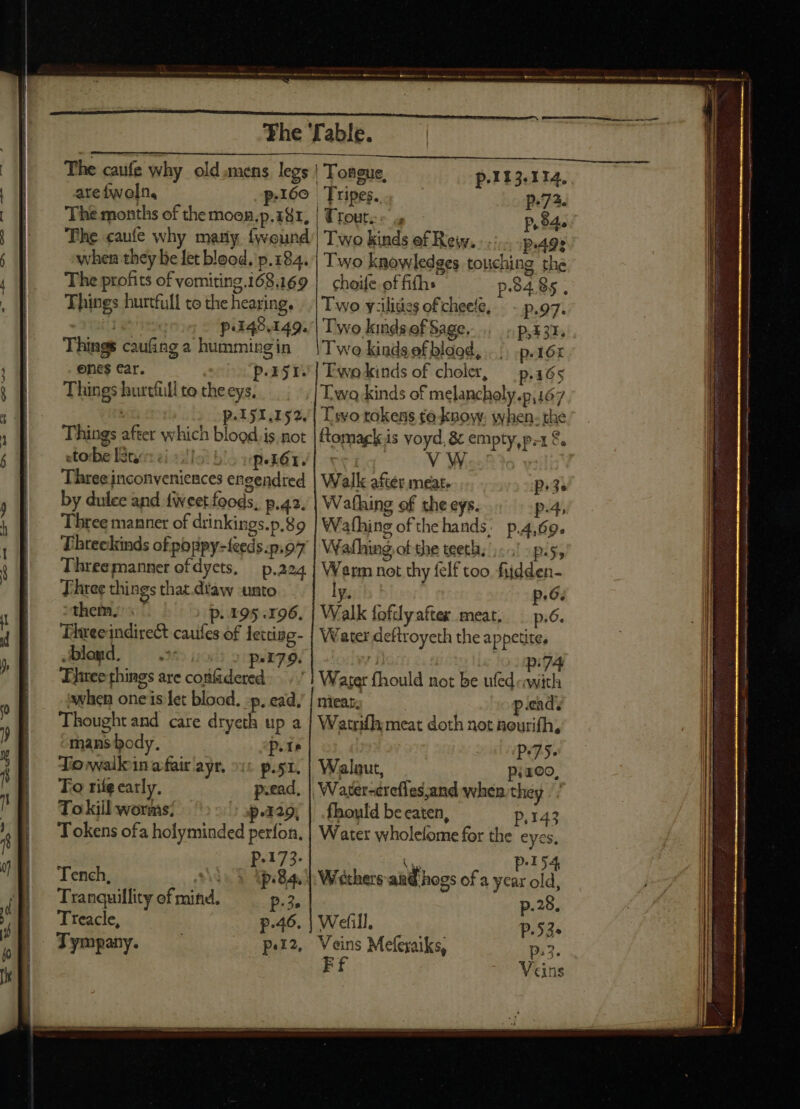 The Table.
The cauſe why old mens legs
are ſwoln, p.160
The months of the moon,p.181,
The cauſe why many ſwound
when they be let blood, p.184.
The profits of vomiting.168,169
Things hurtfull to the hearing,
p.148,149.
Things cauſing a humming in
ones ear. p.151.
Things hurtfull to the eys.
p.151,152.
Things after which blood is not
to be p.161.
Three inconveniences engendred
by dulce and ſweet foods, p.42.
Three manner of drinkings.p.89
Three kinds of poppy-ſeeds.p.97
Three manner of dyets, p.224
Three things that draw unto
them, p. 195.196.
Three indirect cauſes of letting-
bloud. p.179.
Three things are conſidered
when one is let blood. p. ead,
Thought and care dryeth up a
mans body. p.1
To walk in a fair ayr, p.51,
To riſe early. p.ead,
To kill worms, p.129,
Tokens of a holyminded perſon,
p.173.
Tench, p.84.
Tranquillity of mind. p.3.
Treacle, p.46.
Tympany. p.12,
Tongue, p.113.114.
Tripes. p.72.
Trout. p.84.
Two kinds of Rew. p.49
Two knowledges touching the
choiſe of fiſh p.84.85.
Two of cheeſe, p.97.
Two kinds of Sage. p.131.
Two kinds of blood, p.161
Two kinds of choler, p.165
Two kinds of melancholy.p.167
Two tokens to know when the
ſtomack is voyd, & empty,p.18.
V W
Walk after meat. p.3.
Waſhing of the eys. p.4,
Waſhing of the hands, p.4,69.
Waſhing of the teeth, p.5,
Warm not thy ſelf too ſudden-
ly. p.6.
Walk ſoftly after meat, p.6.
Water deſtroyeth the appetite.
p.74
Water ſhould not be uſed with
meat, p.ead.
Watriſh meat doth not nouriſh,
p.75.
Walnut, p.100,
Water-creſſes,and when they
ſhould be eaten, p.143
Water wholeſome for the eyes,
p.154
Wethers and hogs of a year old,
p.28,
Wefill, p.53.
Veins Meſeraiks, p.3.
Ff Veins